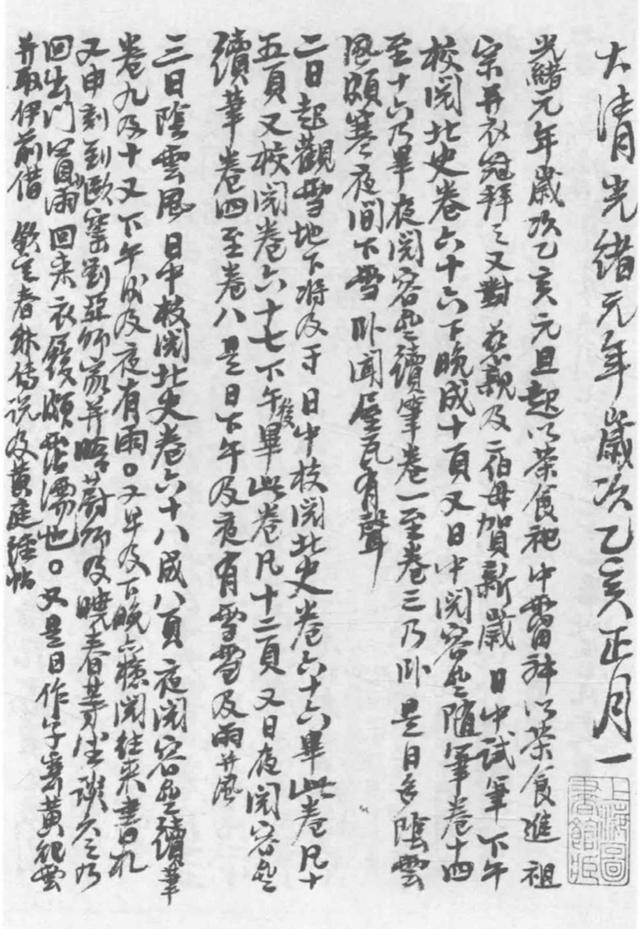 大清光緒元年歲次乙亥正月一
光緒元年歲次乙亥元旦起以茶食祀中霤神以茶食進 祖
宗并衣冠拜之又對 慈親及二伯母賀新歲 日中試筆下午
校閱北史卷六十六下晚成十頁又日中閱容齋隨筆卷十四
至十六乃畢夜閱容齋續筆卷一至卷三乃卧是日多陰雲
風頗寒夜間下雪卧聞屋瓦有聲
二日起觀雪地下將及寸 日中校閱北史卷六十六畢此卷凡十
五頁又校閱卷六十七下午後畢此卷凡十二頁又日夜閱容齋
續筆卷四至卷八是日下午及夜有雪雪及雨并風
三日陰雲風 日中校閱北史卷六十八成八頁夜閱容齋續筆
卷九及十又下午後及夜有雨。又早及下晚閱往來書札
又申刻到 劉亞師家并晤 師及曉春等坐談久之乃
回出門買 雨回來衣履頗霑濡也。又是日作字寄黃
并取伊前借 欽定春秋傳說及黃庭經帖
上海圖書館藏